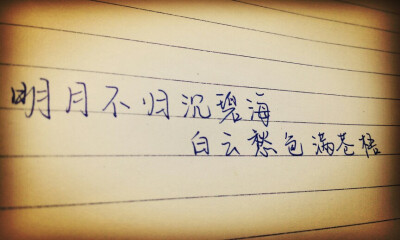 明月不归沉碧海
白云愁色满苍梧